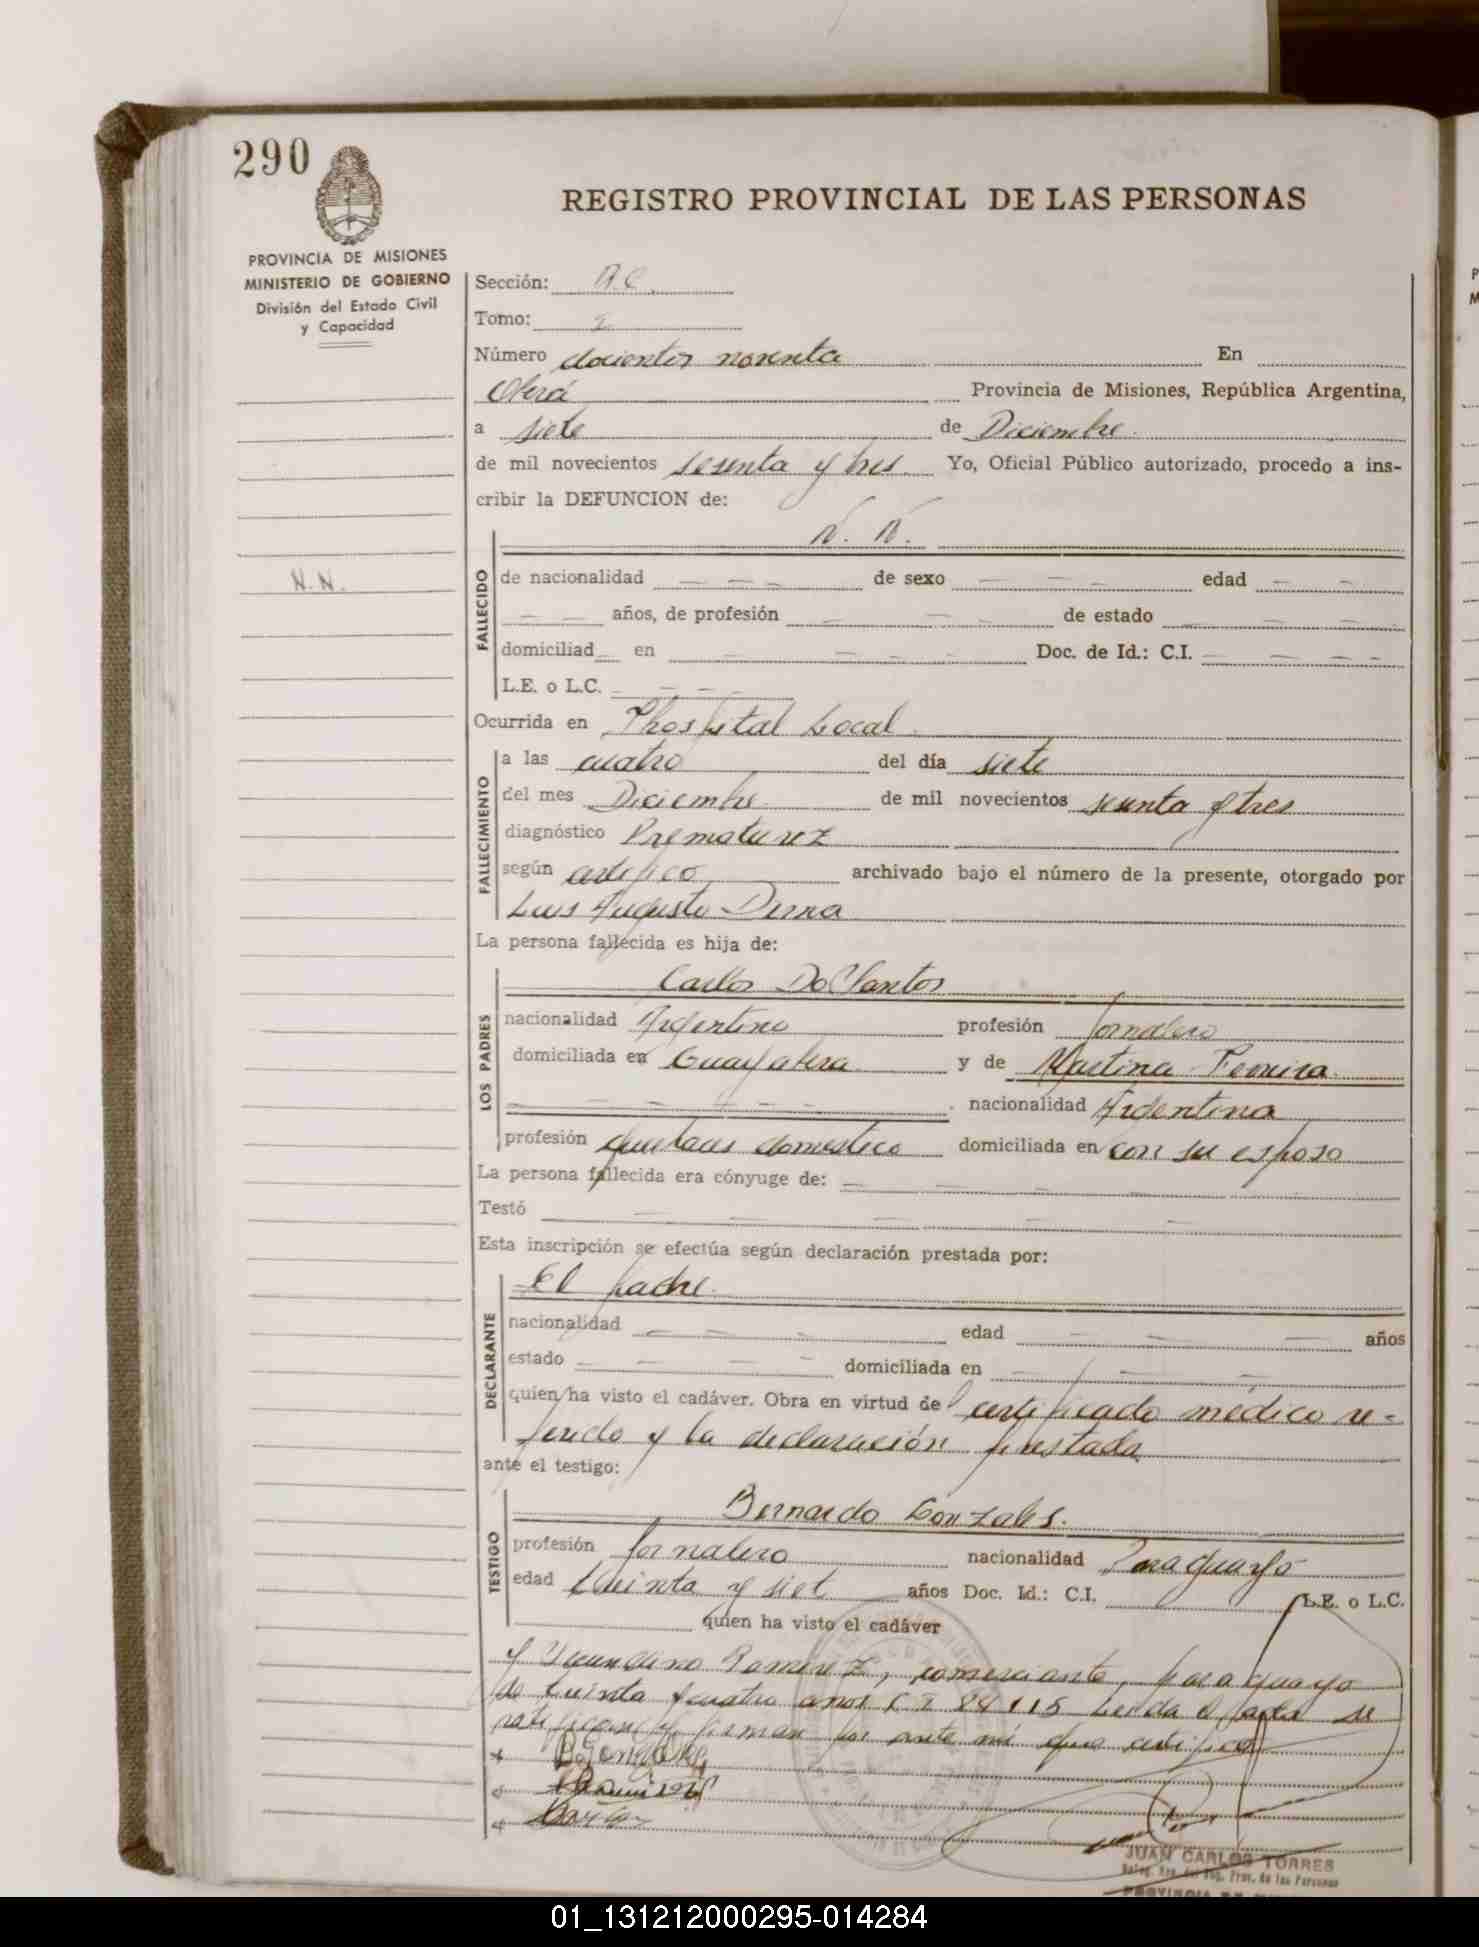 290
REGISTRO PROVINCIAL DE LAS PERSONAS
PROVINCIA DE MISIONES
MINISTERIO DE GOBIERNO
División del Estado Civil
y Capacidad
Sección:
Tomo: 2
Número docientos noventa En
Oberá Provincia de Misiones, República Argentina,
a siete de Diciembre
de mil novecientos sesenta y tres Yo, Oficial Público autorizado, procedo a ins-
cribir la DEFUNCION de:
N. N.
N.N.
FALLECIDO
de nacionalidad — — — de sexo — — — edad — —
— — años, de profesión — — — de estado — — —
domiciliad— en — — — Doc. de Id.: C.I. — — — —
L.E. o L.C. — — —
Ocurrida en Hospital Local
FALLECIMIENTO
a las cuatro del día siete
del mes Diciembre de mil novecientos sesenta y tres
diagnóstico Prematurez
según archivado bajo el número de la presente, otorgado por
Luis Augusto Derna
La persona fallecida es hija de:
LOS PADRES
Carlos Do Santos
nacionalidad Argentino profesión Jornalero
domiciliada en Guayabera y de Martina Ferreira
— — — — — nacionalidad Argentina
profesión domestico domiciliada en con su esposo
La persona fallecida era cónyuge de: — — — — —
Testó — — — — —
Esta inscripción se efectúa según declaración prestada por:
DECLARANTE
El padre
nacionalidad — — — edad — — — años
estado — — — — domiciliada en — — —
quien ha visto el cadáver. Obra en virtud de certificado médico re-
ferido y la declaración prestada
ante el testigo:
TESTIGO
Bernardo Gonzales.
profesión Jornalero nacionalidad Paraguayo
edad treinta y siet años Doc. Id.: C.I. L.E. o L.C.
quien ha visto el cadáver
y Ramirez, comerciante, paraguayo
de treinta y cuatro años C I 84115 Leida el acta se
ratifican y firman por ante mi que certifico
JUAN CARLOS TORRES
Prov. de las Personas
01_131212000295-014284